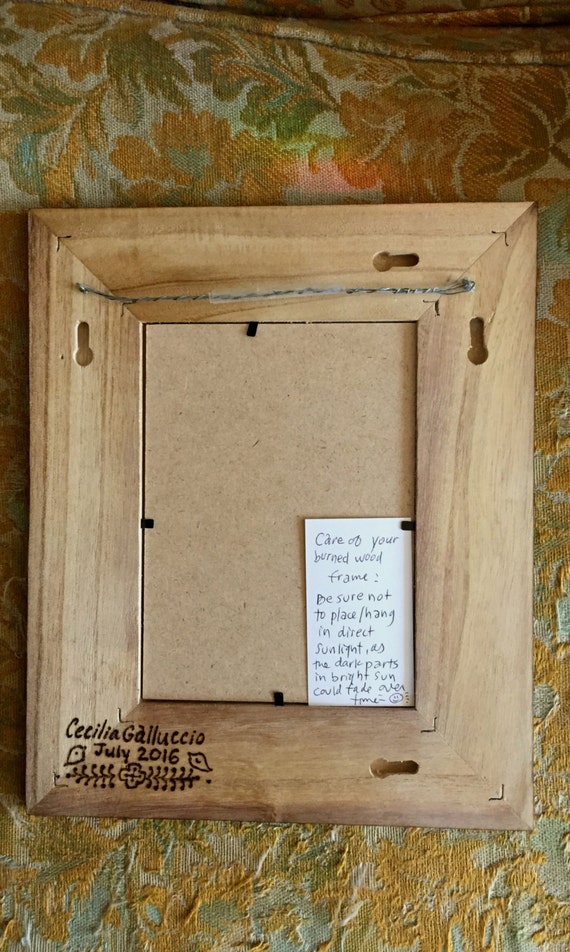 Care of your
burned wood
frame:
Be sure not
to place/hang
in direct
sunlight, as
the dark parts
in bright sun
could fade over
time
Cecilia Galluccio
July 2016